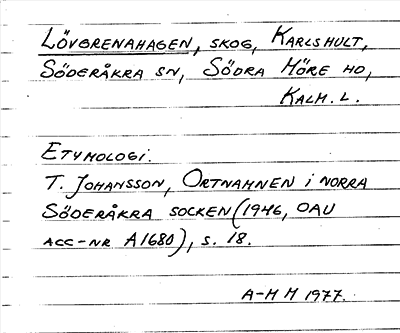 LÖVGRENAHAGEN, SKOG, KARLSHULT,
SÖDERÅKRA SN, SÖDRA MÖRE HD,
KALM. L.
ETYMOLOGI.
T. JOHANSSON, ORTNAMNEN I NORRA
SÖDERÅKRA SOCKEN (1946, OAU
ACC-NR A1680), S. 18.
A-M H 1977.